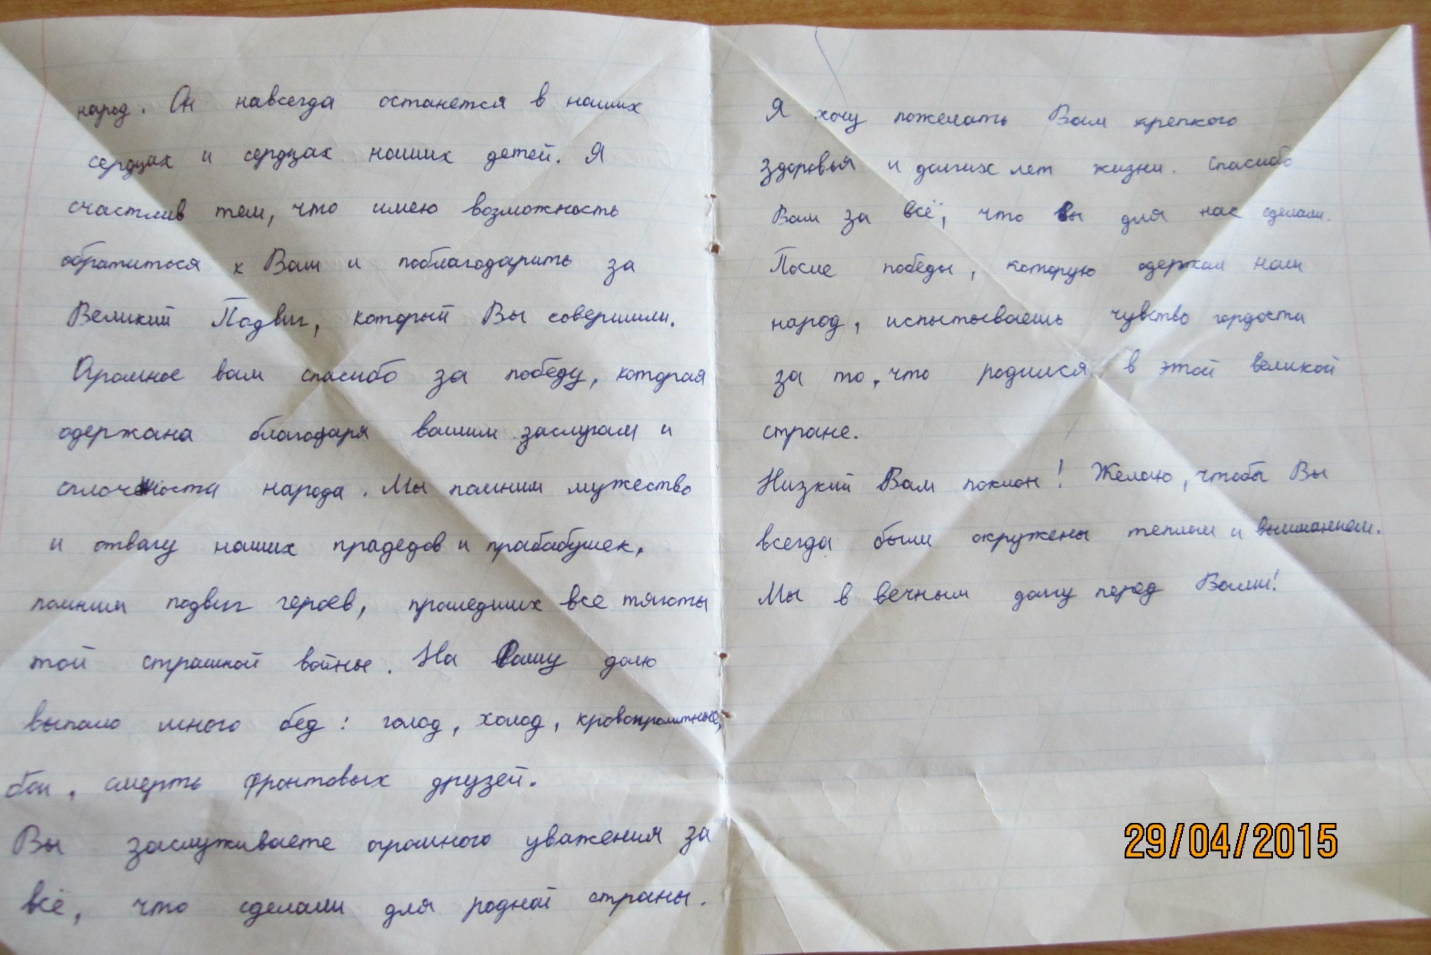 народ. Он навсегда останется в наших
сердцах и сердцах наших детей. Я
счастлив тем, что имею возможность
обратиться к Вам и поблагодарить за
Великий Подвиг, который Вы совершили.
Огромное вам спасибо за победу, которая
одержана благодаря вашим заслугам и
сплочёности народа. Мы помним мужество
и отвагу наших прадедов и прабабушек,
помним подвиг героев, прошедших все тяготы
той страшной войны. На Вашу долю
выпало много бед: голод, холод, кровопролитные,
бои, смерть фронтовых друзей.
Вы заслуживаете огромного уважения за
всё, что сделали для родной страны.
Я хочу пожелать Вам крепкого
здоровья и долгих лет жизни. Спасибо
Вам за всё, что вы для нас сделали.
После победы, которую одержал наш
народ, испытываешь чувство гордости
за то, что родился в этой великой
стране.
Низкий Вам поклон! Желаю, чтобы Вы
всегда были окружены теплом и вниманием.
Мы в вечным долгу перед Вами!
29/04/2015